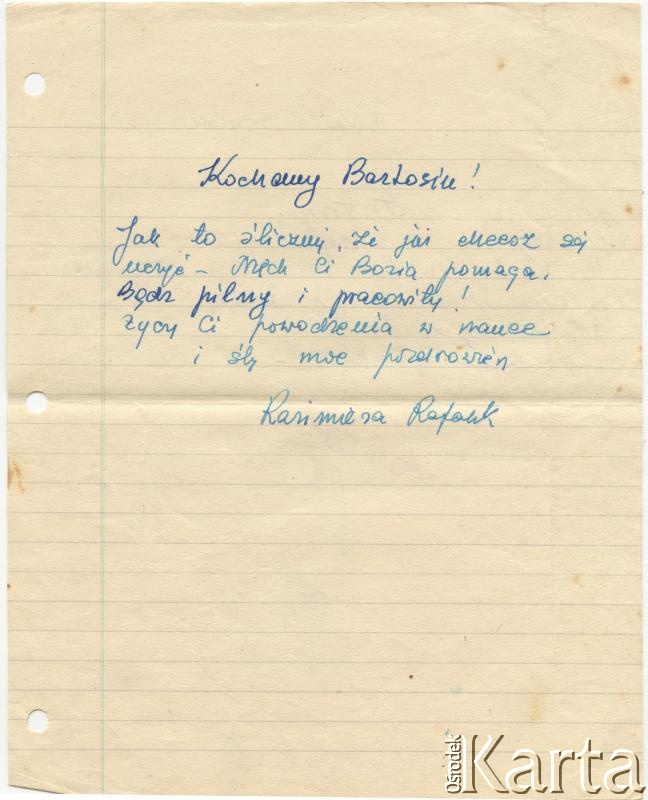 Kochany Bartosiu!
Jak to ślicznie, że już chcesz się
uczyć – Niech Ci Bozia pomaga.
Bądź pilny i pracowity!
Życzę Ci powodzenia w nauce
i ślę moc pozdrowień
Kazimiera Rafałik
ośrodek Karta